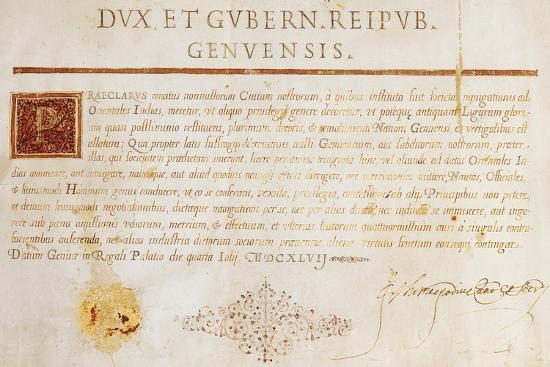 DVX ET GVBERN. REIPVB.
GENVENSIS.
PRAECLARVS conatus nonnullorum Civium nostrorum, à quibus instituta fuit societas navigationis ad
Orientales Indias, meretur, ut aliquo privilegij genere decoretur, ut potequè antiquam Ligurum glori-
am quasi postliminio restituens, plurimum decoris, & emolumenti Nationi Genuensi, & vectigalibus est
allatura; Qua propter latis suffragijs decrevimus nulli Genuensium, aut subditorum nostrorum, præter
illos, qui societatem prædictam inierint, licere per annos triginta hinc, vel aliunde ad dictas Orientales In-
dias commeare, aut navigare, navesque, aut aliud quodvis navigij genus dirigere, nec mittere, Nautas, Officiales,
& huiusmodi Hominum genus conducere, ut eo se conferant, vexilla, privilegia, ab alijs Principibus non petere,
et demum huiusmodi negotiationibus, dictæque navigationi per se, nec per alios directè, nec indirectè se immiscere, aut inge-
rere sub pœna amissionis navium, mercium, & effectuum, et vlterius scutorum quattuormillium auri à singulis contra-
facientibus auferenda, ne alius industria dictorum sociorum præventos alienæ virtutis fructum consequi contingat.
Datum Genuæ in Regali Palatio die quarta Iulij. MDCXLVIJ